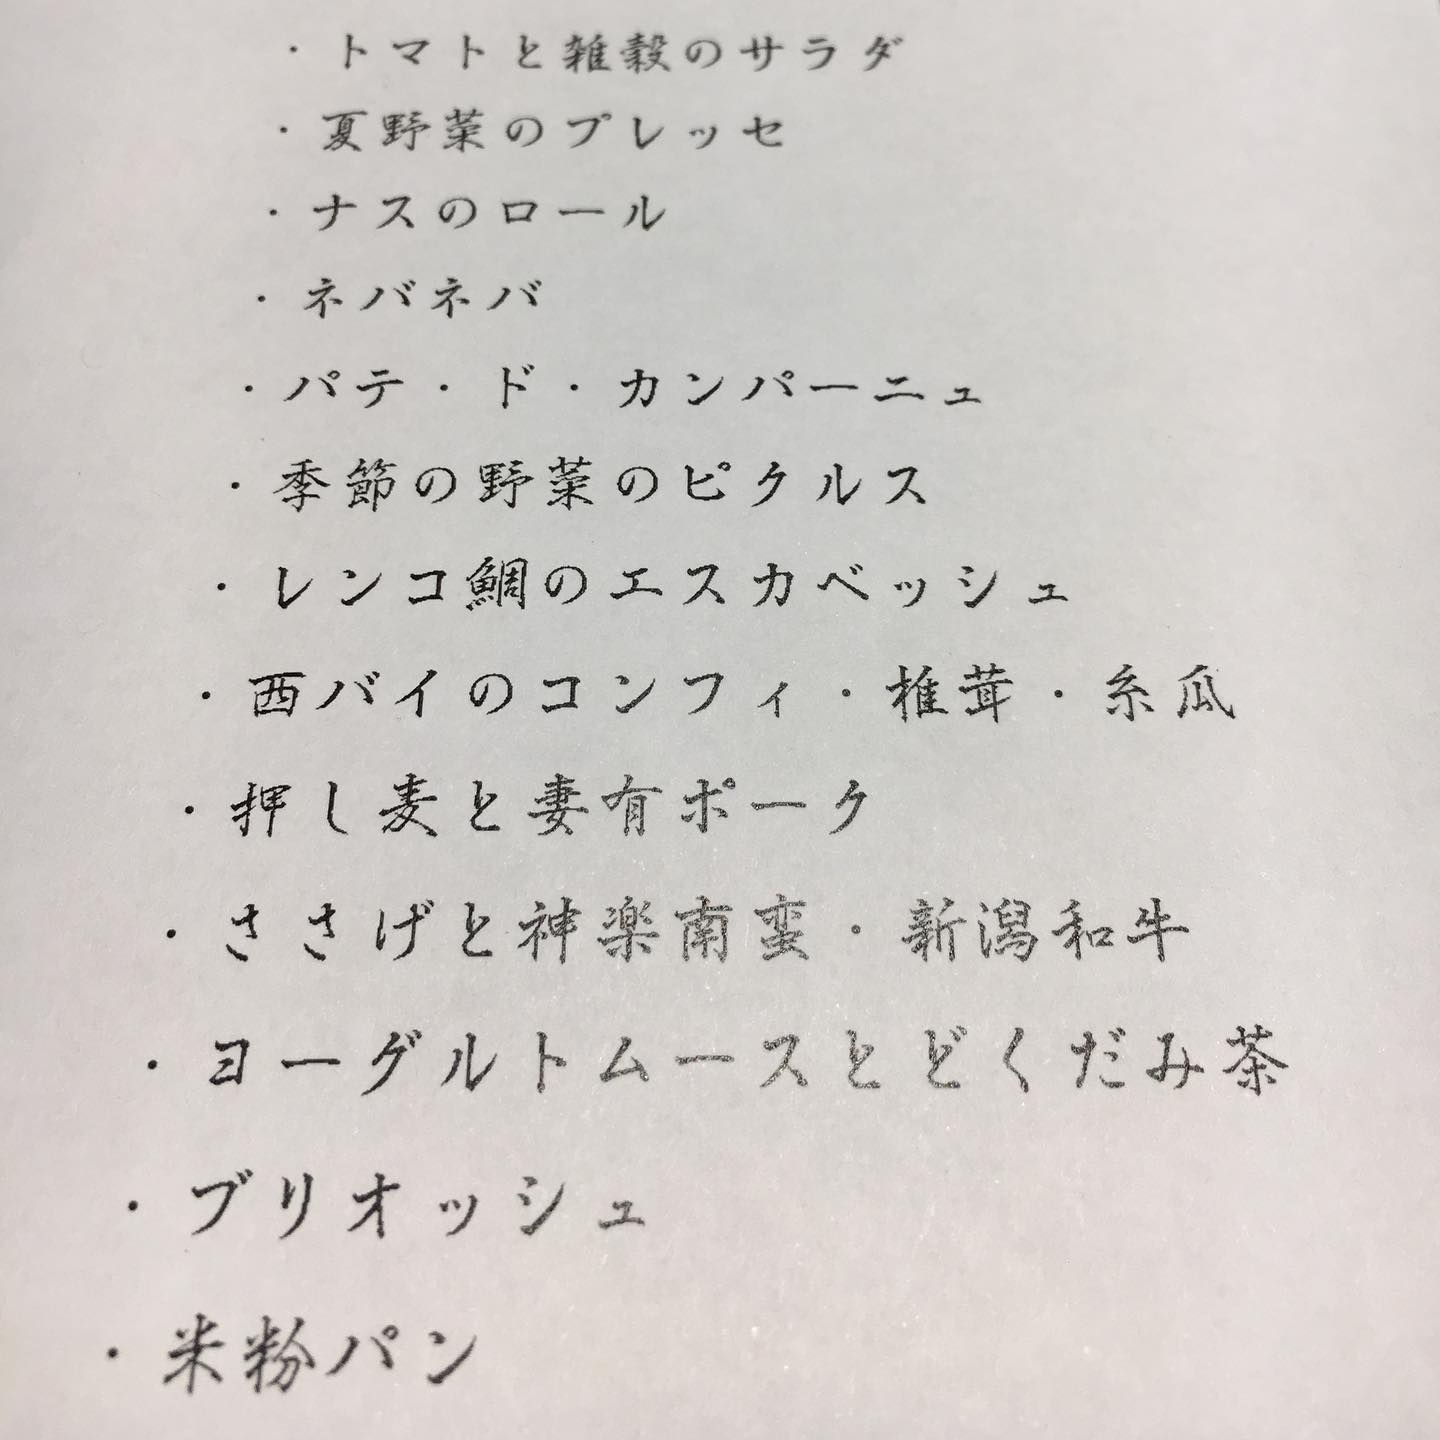 ・トマトと雑穀のサラダ
・夏野菜のプレッセ
・ナスのロール
・ネバネバ
・パテ・ド・カンパーニュ
・季節の野菜のピクルス
・レンコ鯛のエスカベッシュ
・西バイのコンフィ・椎茸・糸瓜
・押し麦と妻有ポーク
・ささげと神楽南蛮・新潟和牛
・ヨーグルトムースとどくだみ茶
・ブリオッシュ
・米粉パン